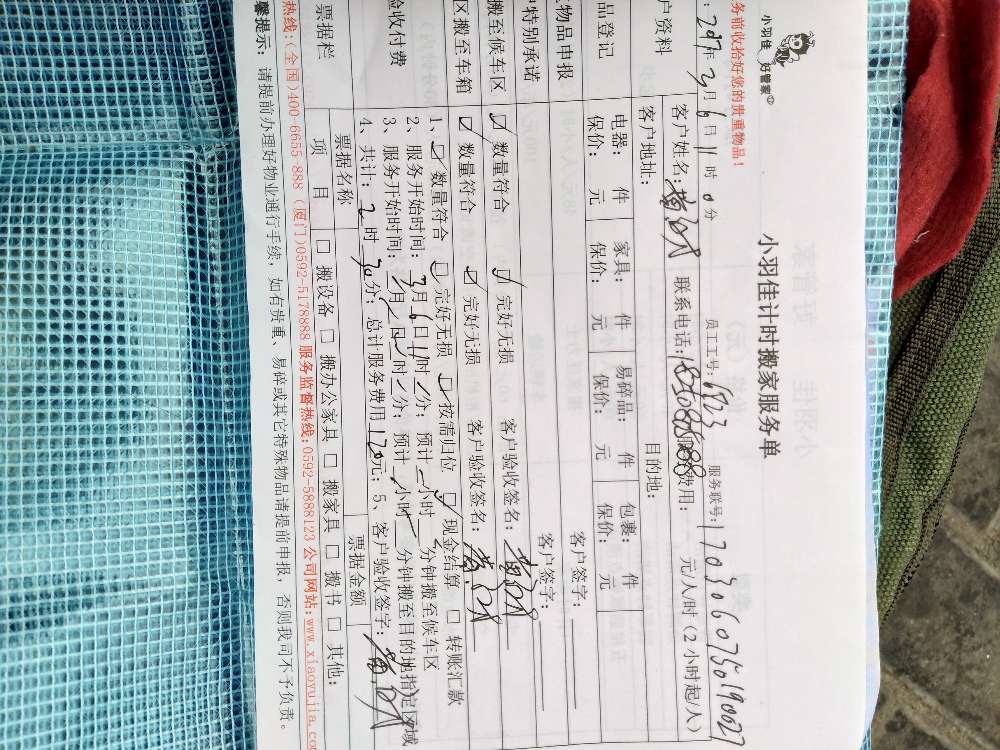 小羽佳 好管家
务前收拾好您的贵重物品!
小羽佳计时搬家服务单
2017年3月6日11时0分 员工工号: 6723 服务联号: 1703060750190027
户资料 客户姓名: 联系电话: 费用: 元/人/时(2小时起/人)
客户地址: 目的地:
品登记 电器: 件 家具: 件 易碎品: 件 包裹: 件
保价: 元 保价: 元 保价: 元 保价: 元
物品申报 客户签字:
特别承诺 客户签字:
搬至候车区 ☑ 数量符合 ☑ 完好无损 客户验收签名:
区搬至车箱 ☑ 数量符合 ☑ 完好无损 客户验收签名:
验收付费 1、☑ 数量符合 ☑ 完好无损 ☑ 按需归位 ☑ 现金结算 □ 转账汇款
2、服务开始时间: 3月6日11时 分; 预计 小时 分钟搬至候车区
3、服务开始时间: 月 日 时 分; 预计 小时 分钟搬至目的地指定区域
4、共计: 2时30分; 总计服务费用120元; 5、客户验收签字:
票据栏 票据名称 票据金额
项目 □ 搬设备 □ 搬办公家具 □ 搬家具 □ 搬书 □ 其他:
热线:(全国)400-6655-888 (厦门)0592-5178888 服务监督热线:0592-5888123 公司网站:www.xiaoyujia.co
馨提示: 请提前办理好物业通行手续, 如有贵重、易碎或其它特殊物品请提前申报, 否则我司不予负责。